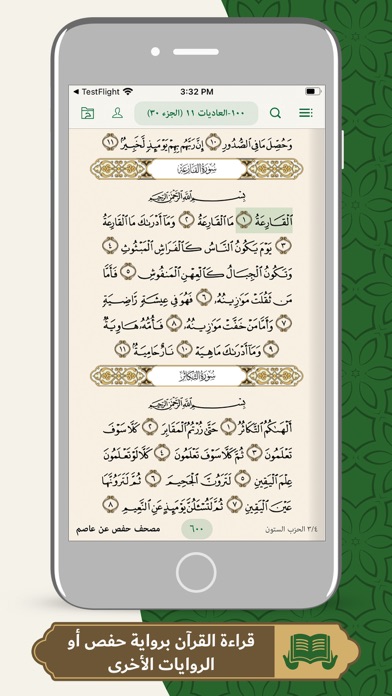 TestFlight
3:32 PM
١٠٠-العاديات ١١ (الجزء ٣٠)
وَحُصِّلَ مَا فِي ٱلصُّدُورِ ١٠ إِنَّ رَبَّهُم بِهِمْ يَوْمَئِذٍ لَّخَبِيرٌۢ ١١
سُورَةُ القَارِعَةِ
بِسْمِ ٱللَّهِ ٱلرَّحْمَٰنِ ٱلرَّحِيمِ
ٱلْقَارِعَةُ ١ مَا ٱلْقَارِعَةُ ٢ وَمَآ أَدْرَىٰكَ مَا ٱلْقَارِعَةُ
٣ يَوْمَ يَكُونُ ٱلنَّاسُ كَٱلْفَرَاشِ ٱلْمَبْثُوثِ ٤
وَتَكُونُ ٱلْجِبَالُ كَٱلْعِهْنِ ٱلْمَنفُوشِ ٥ فَأَمَّا
مَن ثَقُلَتْ مَوَٰزِينُهُۥ ٦ فَهُوَ فِي عِيشَةٍ رَّاضِيَةٍ
٧ وَأَمَّا مَنْ خَفَّتْ مَوَٰزِينُهُۥ ٨ فَأُمُّهُۥ هَاوِيَةٌ
٩ وَمَآ أَدْرَىٰكَ مَا هِيَهْ ١٠ نَارٌ حَامِيَةٌۢ ١١
سُورَةُ التَّكَاثُرِ
بِسْمِ ٱللَّهِ ٱلرَّحْمَٰنِ ٱلرَّحِيمِ
أَلْهَىٰكُمُ ٱلتَّكَاثُرُ ١ حَتَّىٰ زُرْتُمُ ٱلْمَقَابِرَ ٢ كَلَّا سَوْفَ
تَعْلَمُونَ ٣ ثُمَّ كَلَّا سَوْفَ تَعْلَمُونَ ٤ كَلَّا لَوْ تَعْلَمُونَ
عِلْمَ ٱلْيَقِينِ ٥ لَتَرَوُنَّ ٱلْجَحِيمَ ٦ ثُمَّ لَتَرَوُنَّهَا
عَيْنَ ٱلْيَقِينِ ٧ ثُمَّ لَتُسْـَٔلُنَّ يَوْمَئِذٍ عَنِ ٱلنَّعِيمِ ٨
٣/٤ الحزب الستون
٦٠٠
مصحف حفص عن عاصم
قراءة القرآن برواية حفص أو
الروايات الأخرى